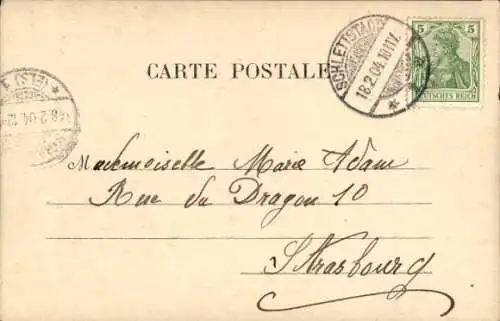 CARTE POSTALE
SCHLETTSTADT
18.2.04.
5 5
DEUTSCHES REICH
(ELS)
18.2.04.
Mademoiselle Marie Adam
Rue du Dragon 10
Strasbourg